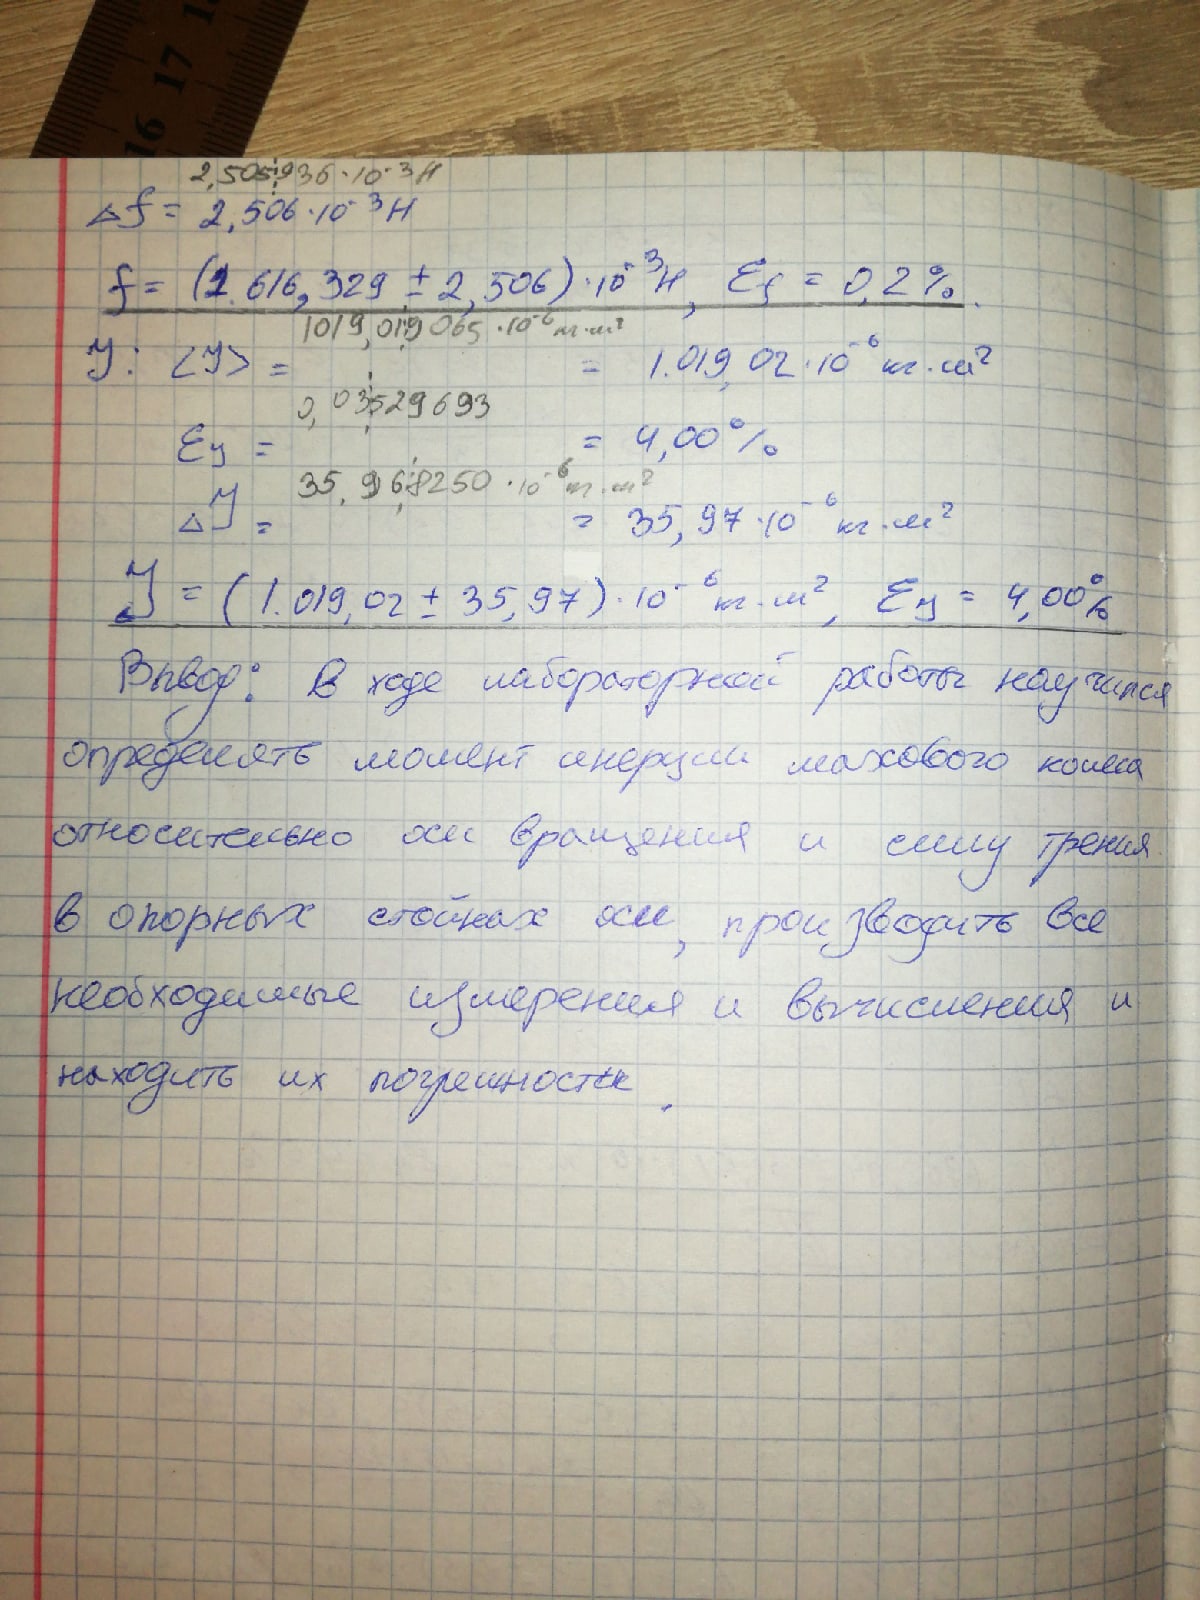 16 17 18
2,505936·10⁻³Н
Δf = 2,506·10⁻³Н
f = (1.616,329 ± 2,506)·10⁻³Н, Ɛf = 0,2%.
1019,019065·10⁻⁶кг·м²
J: <J> = = 1.019,02·10⁻⁶кг·м²
0,03529693
ƐJ = = 4,00%
35,968250·10⁻⁶кг·м²
ΔJ = = 35,97·10⁻⁶кг·м²
J = (1.019,02 ± 35,97)·10⁻⁶кг·м², ƐJ = 4,00%
Вывод: В ходе лабораторной работы научился
определять момент инерции махового колеса
относительно оси вращения и силу трения
в опорных стойках оси, производить все
необходимые измерения и вычисления и
находить их погрешности.